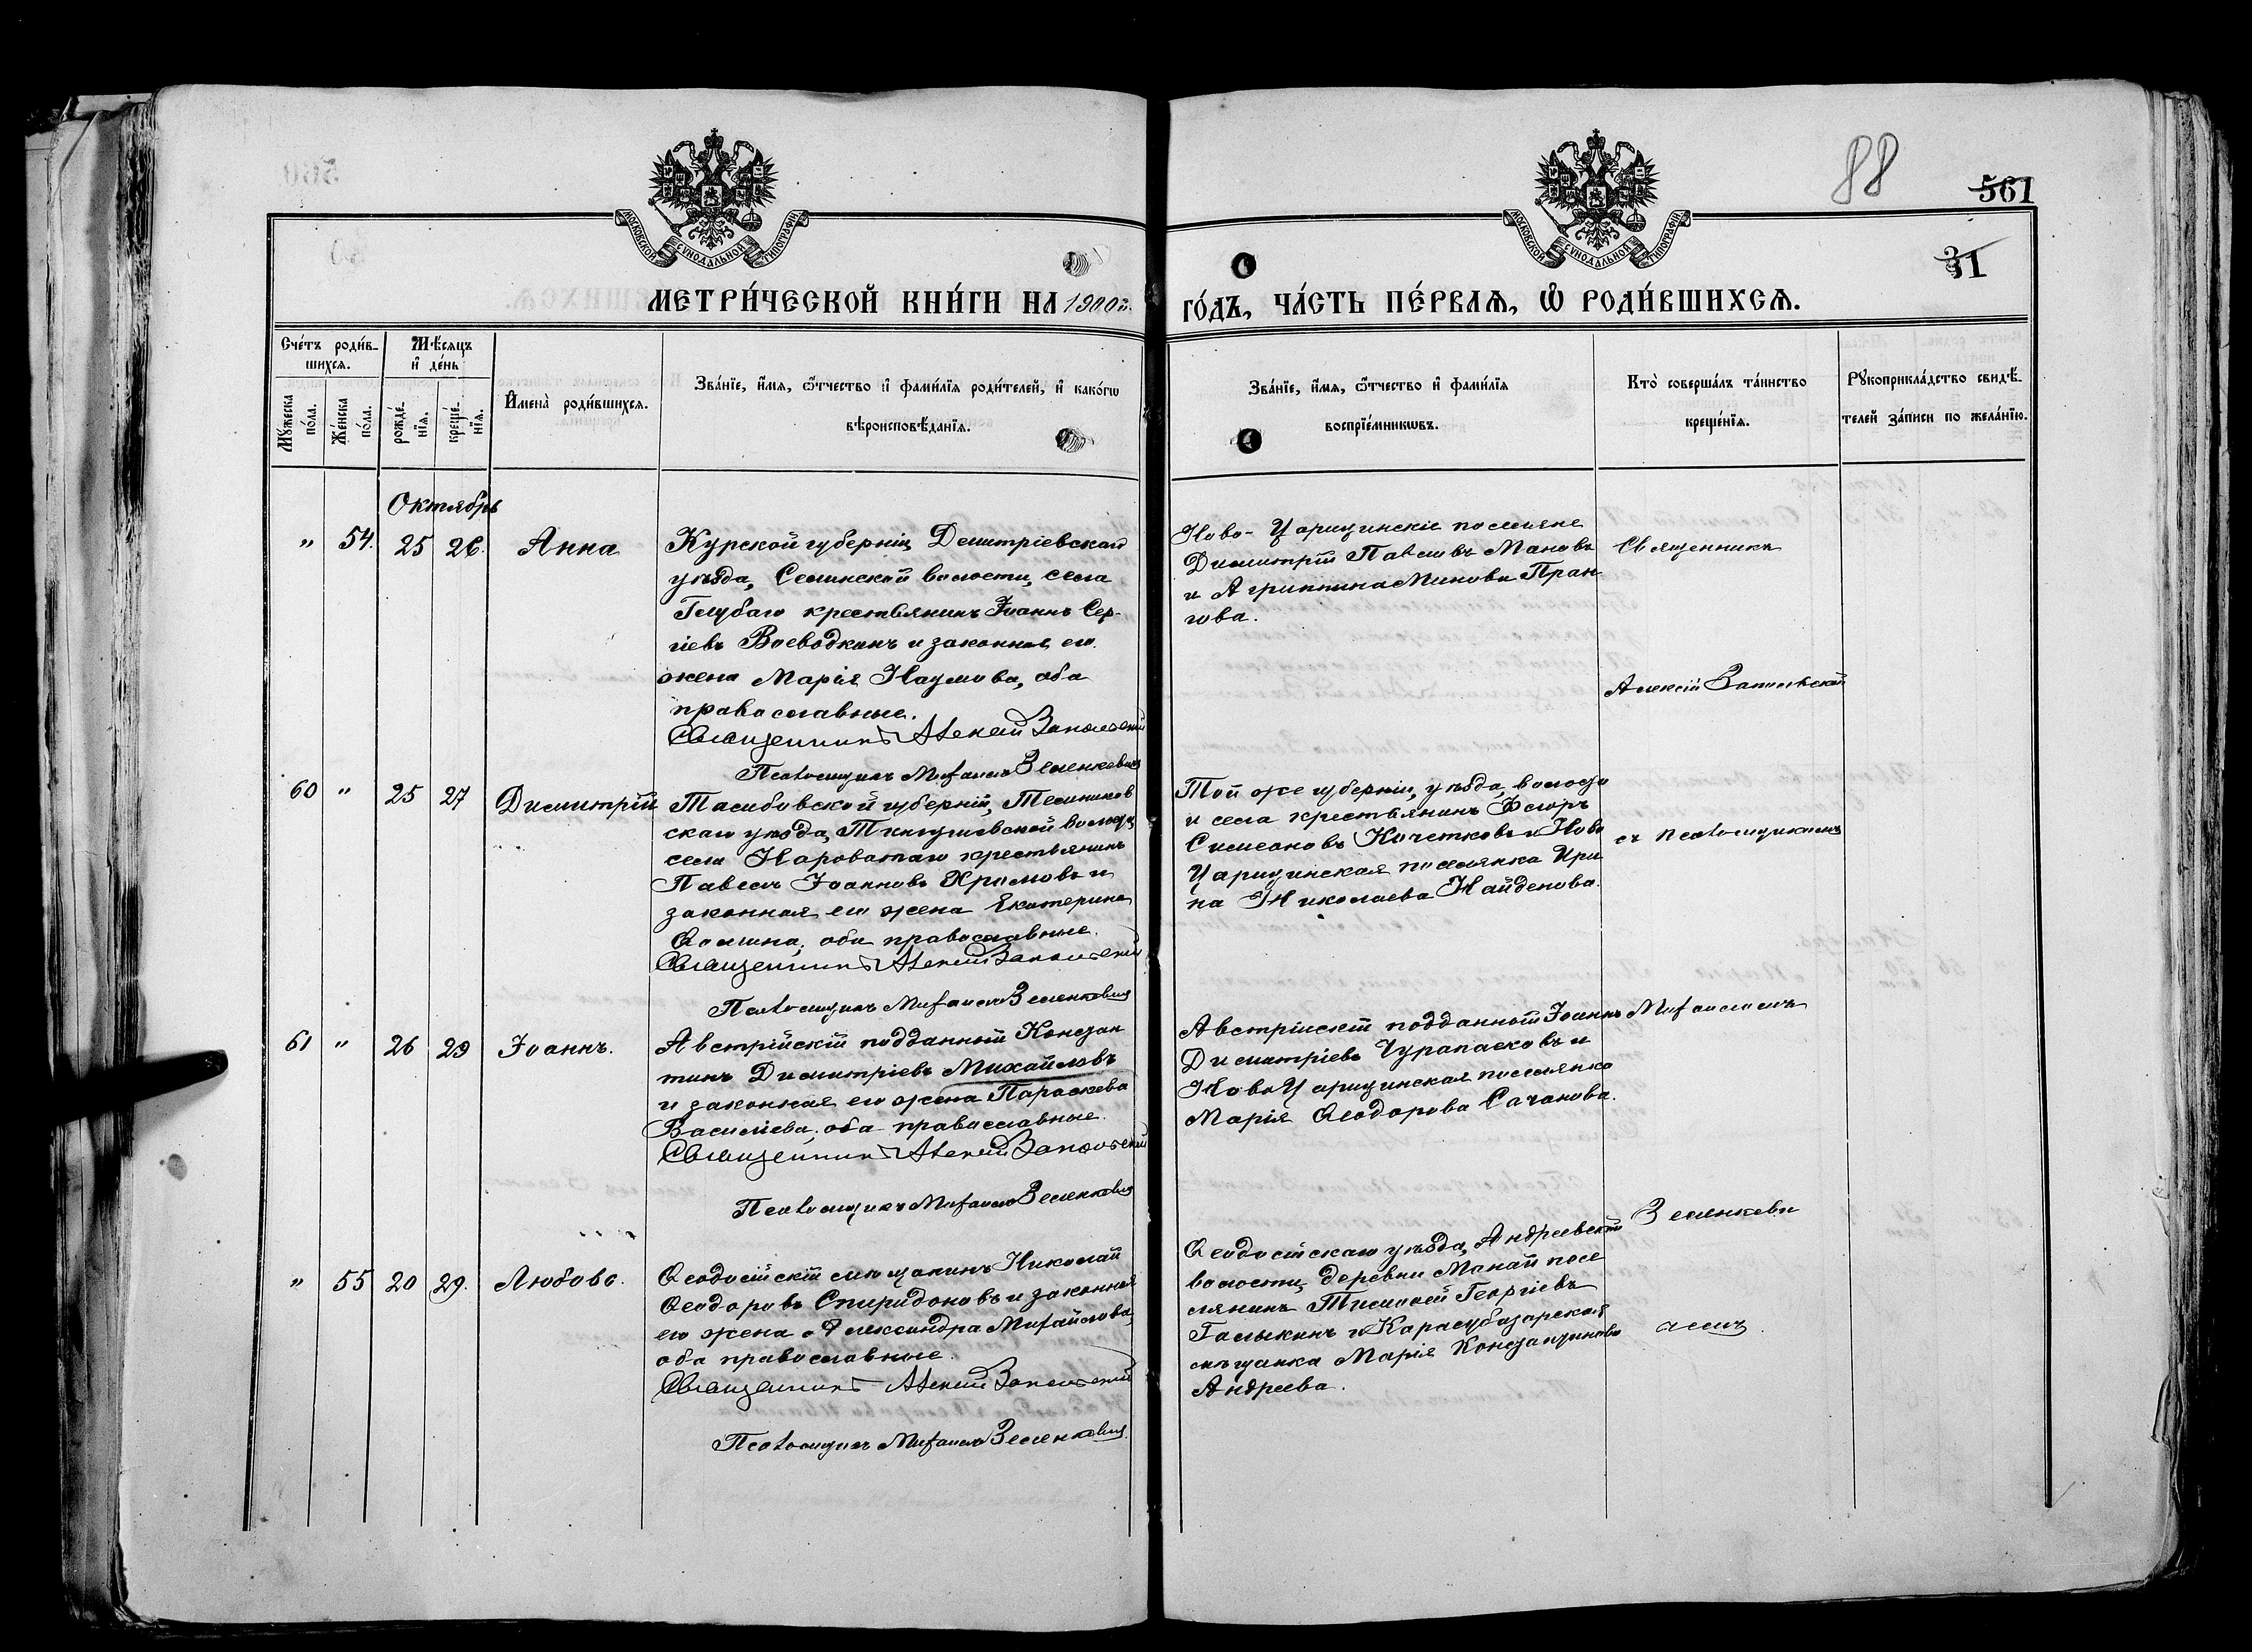 88
561
31
МОСКОВСКОЙ СѴНОДАЛЬНОЙ ТИПОГРАФІИ
МОСКОВСКОЙ СѴНОДАЛЬНОЙ ТИПОГРАФІИ
МЕТРИ́ЧЕСКОЙ КНИ́ГИ НА 1900й.
ГО́ДЪ, ЧА́СТЬ ПЕ́РВАѦ, Ѡ РОДИ́ВШИХСѦ.
Сче́тъ роди́в-
шихсѧ.
Мѹ́жеска
по́ла.
Же́нска
по́ла.
Мѣ́сяцъ
и҆ де́нь
рожде́-
нїѧ.
креще́-
нїѧ.
И҆мена̀ роди́вшихсѧ.
Зва́нїе, и҆́мѧ, ѻ҆́тчество и҆ фами́лїѧ роди́телей, и҆ како́гѡ
вѣроисповѣ́данїѧ.
Зва́нїе, и҆́мѧ, ѻ҆́тчество и҆ фами́лїѧ
воспрїе́мникѡвъ.
Кто̀ соверша́лъ та́инство
креще́нїѧ.
Рѹкоприкла́дство свидѣ́-
телей за́писи по жела́нїю.
Октябрь
" 54. 25 26. Анна
Курской губерніи Демитріевскаго
уѣзда, Селинской волости, села
Голубаго крестьянинъ Іоаннъ Сер-
гіевъ Воеводкинъ и законная его
жена Марія Наумова, оба
православные.
Священникъ Алексій Запольскій
Псаломщикъ Михаилъ Зеленкевичъ
Ново-Царицинскіе поселяне
Димитрій Павловъ Мановъ
и Агриппина Минова Пран
гова.
Священникъ
Алексій Запольскій
60 " 25 27 Димитрій
Тамбовской губерніи, Темников
скаго уѣзда, Теньгушевской волости
села Нароватаго крестьянинъ
Павелъ Іоанновъ Храмовъ и
законная его жена Екатерина
Ѳомина, оба православные.
Священникъ Алексій Запольскій
Псаломщикъ Михаилъ Зеленкевичъ
Той же губерніи, уѣзда, волости
и села крестьянинъ Егоръ
Симеоновъ Кочетковъ и Ново
Царицинская поселянка Ири
на Николаева Найденова.
съ псаломщикомъ
61 " 26 29 Іоаннъ.
Австрійскій подданный Констан
тинъ Димитріевъ Михайловъ
и законная его жена Параскева
Василіева, оба православные.
Священникъ Алексій Запольскій
Псаломщикъ Михаилъ Зеленкевичъ
Австрійскій подданный Іоаннъ
Димитріевъ Чурапасковъ и
Ново Царицинская поселянка
Марія Ѳеодорова Сачанова.
Михаиломъ
" 55 20 29. Любовь.
Ѳеодосійскій мѣщанинъ Николай
Ѳеодоровъ Спиридоновъ и законная
его жена Александра Михайлова,
оба православные.
Священникъ Алексій Запольскій
Псаломщикъ Михаилъ Зеленкевичъ
Ѳеодосійскаго уѣзда, Андреевской
волости, деревни Манай посе
лянинъ Тимофей Георгіевъ
Галыкинъ и Карасубазарская
мѣщанка Марія Константинова
Андреева.
Зеленкеви
чемъ